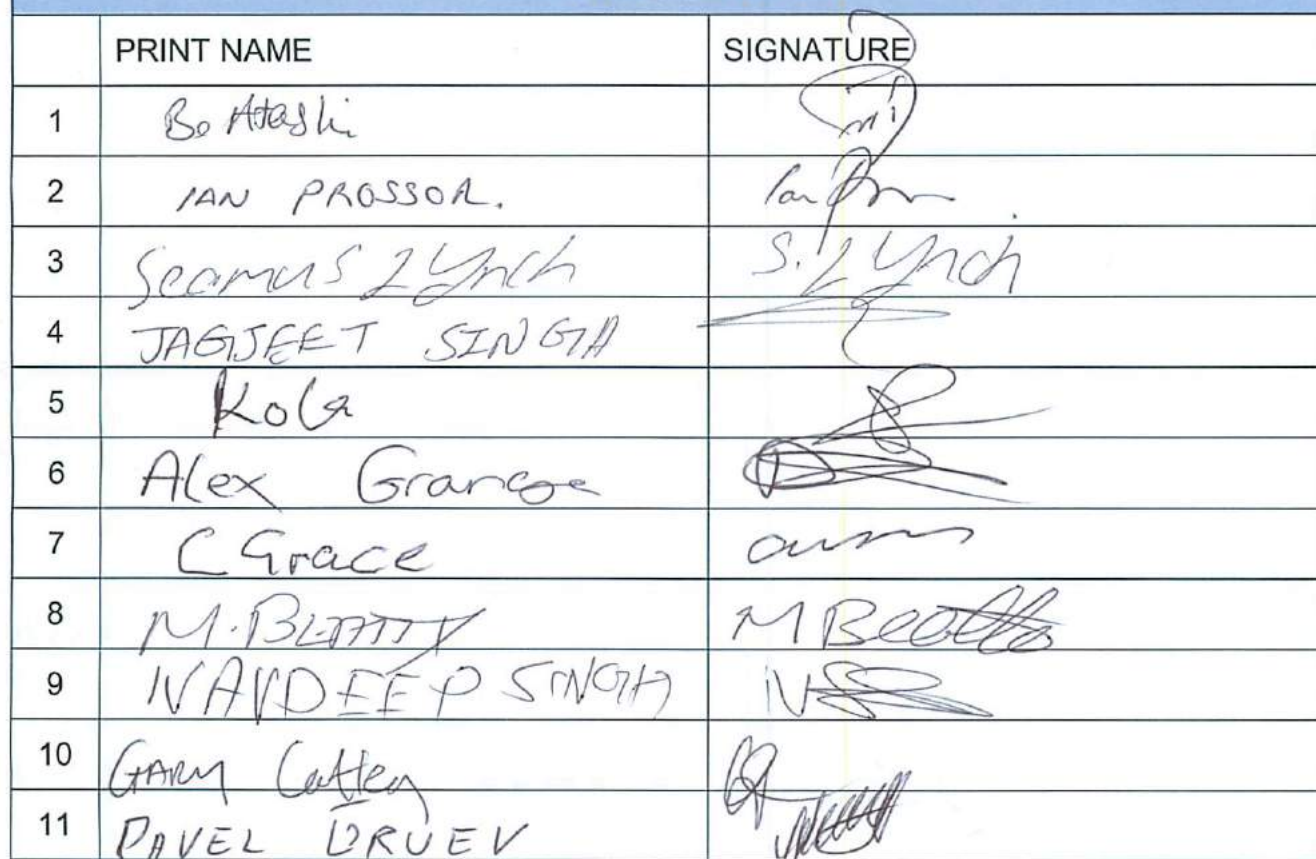 PRINT NAME SIGNATURE
1 Bo Atashi
2 IAN PROSSOR. Ian
3 Seamus Lynch S. Lynch
4 JAGJEET SINGH
5 Kola
6 Alex Grange
7 C Grace
8 M. BEATTY M Beatty
9 NAVDEEP SINGH NS
10 GARY
11 PAVEL